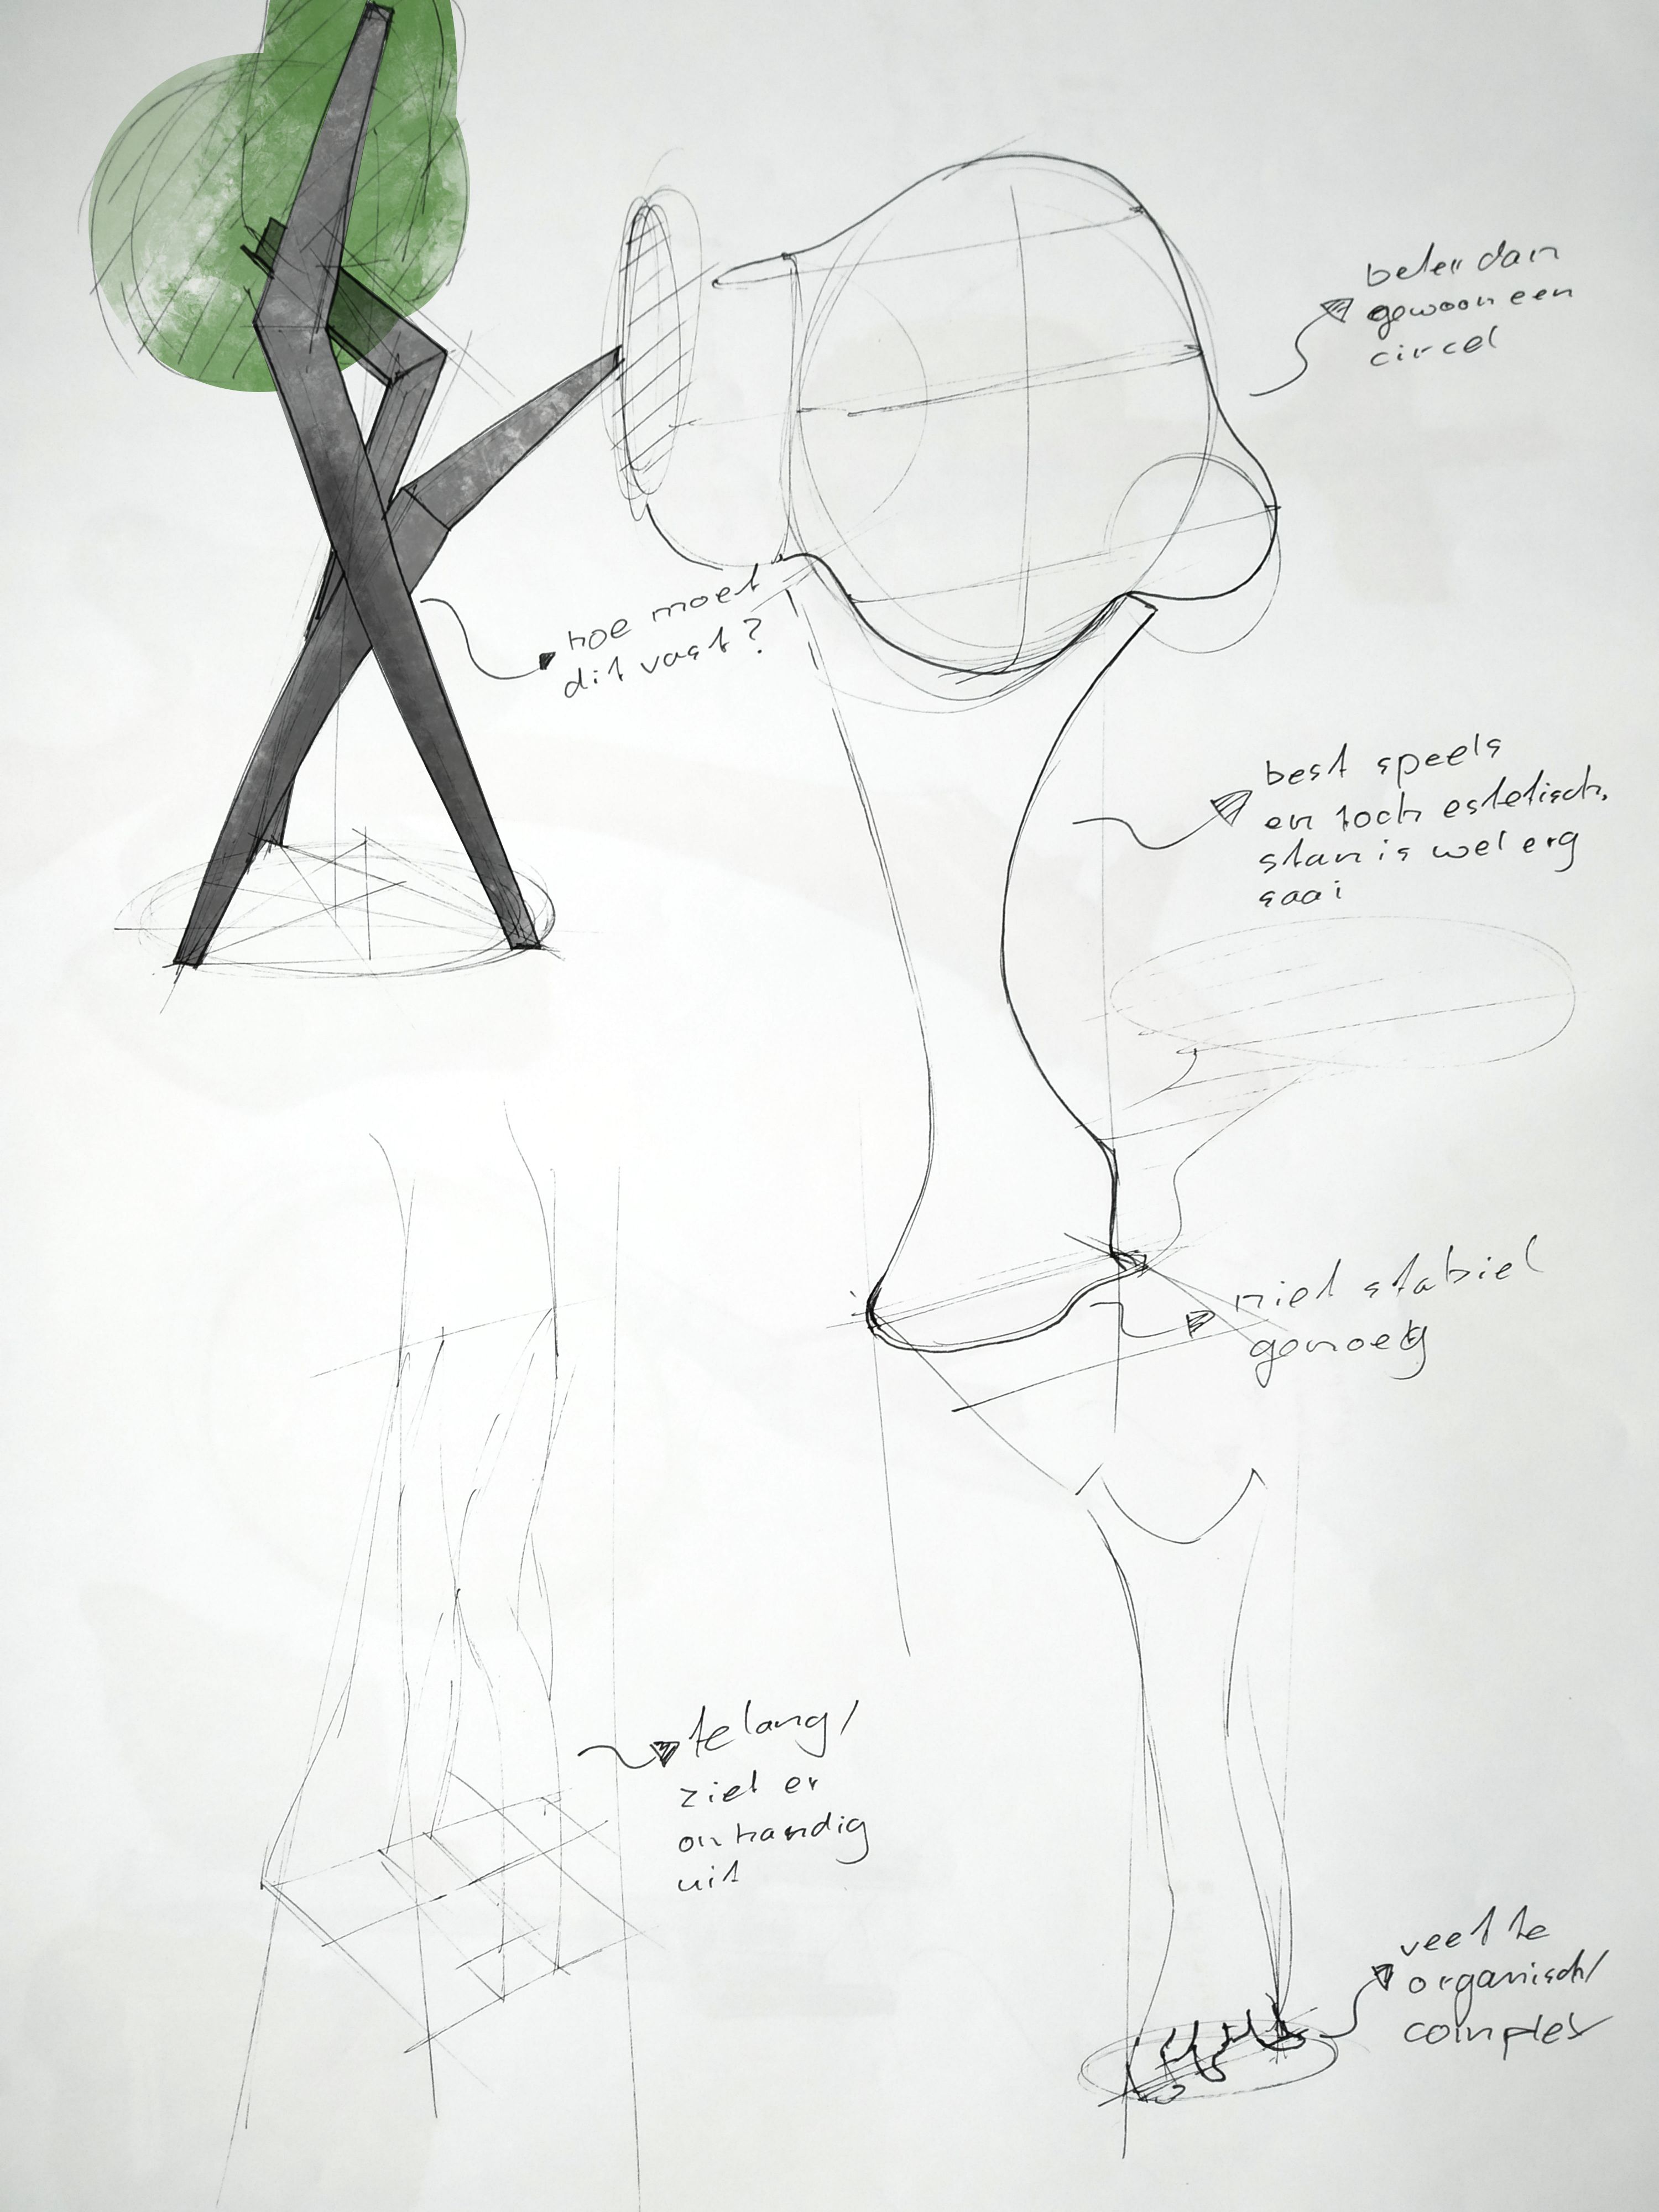 beter dan
gewoon een
circel
hoe moet
dit vast?
best speels
en toch estetisch,
stam is wel erg
saai
niet stabiel
genoeg
te lang/
ziet er
onhandig
uit
veel te
organisch/
complex